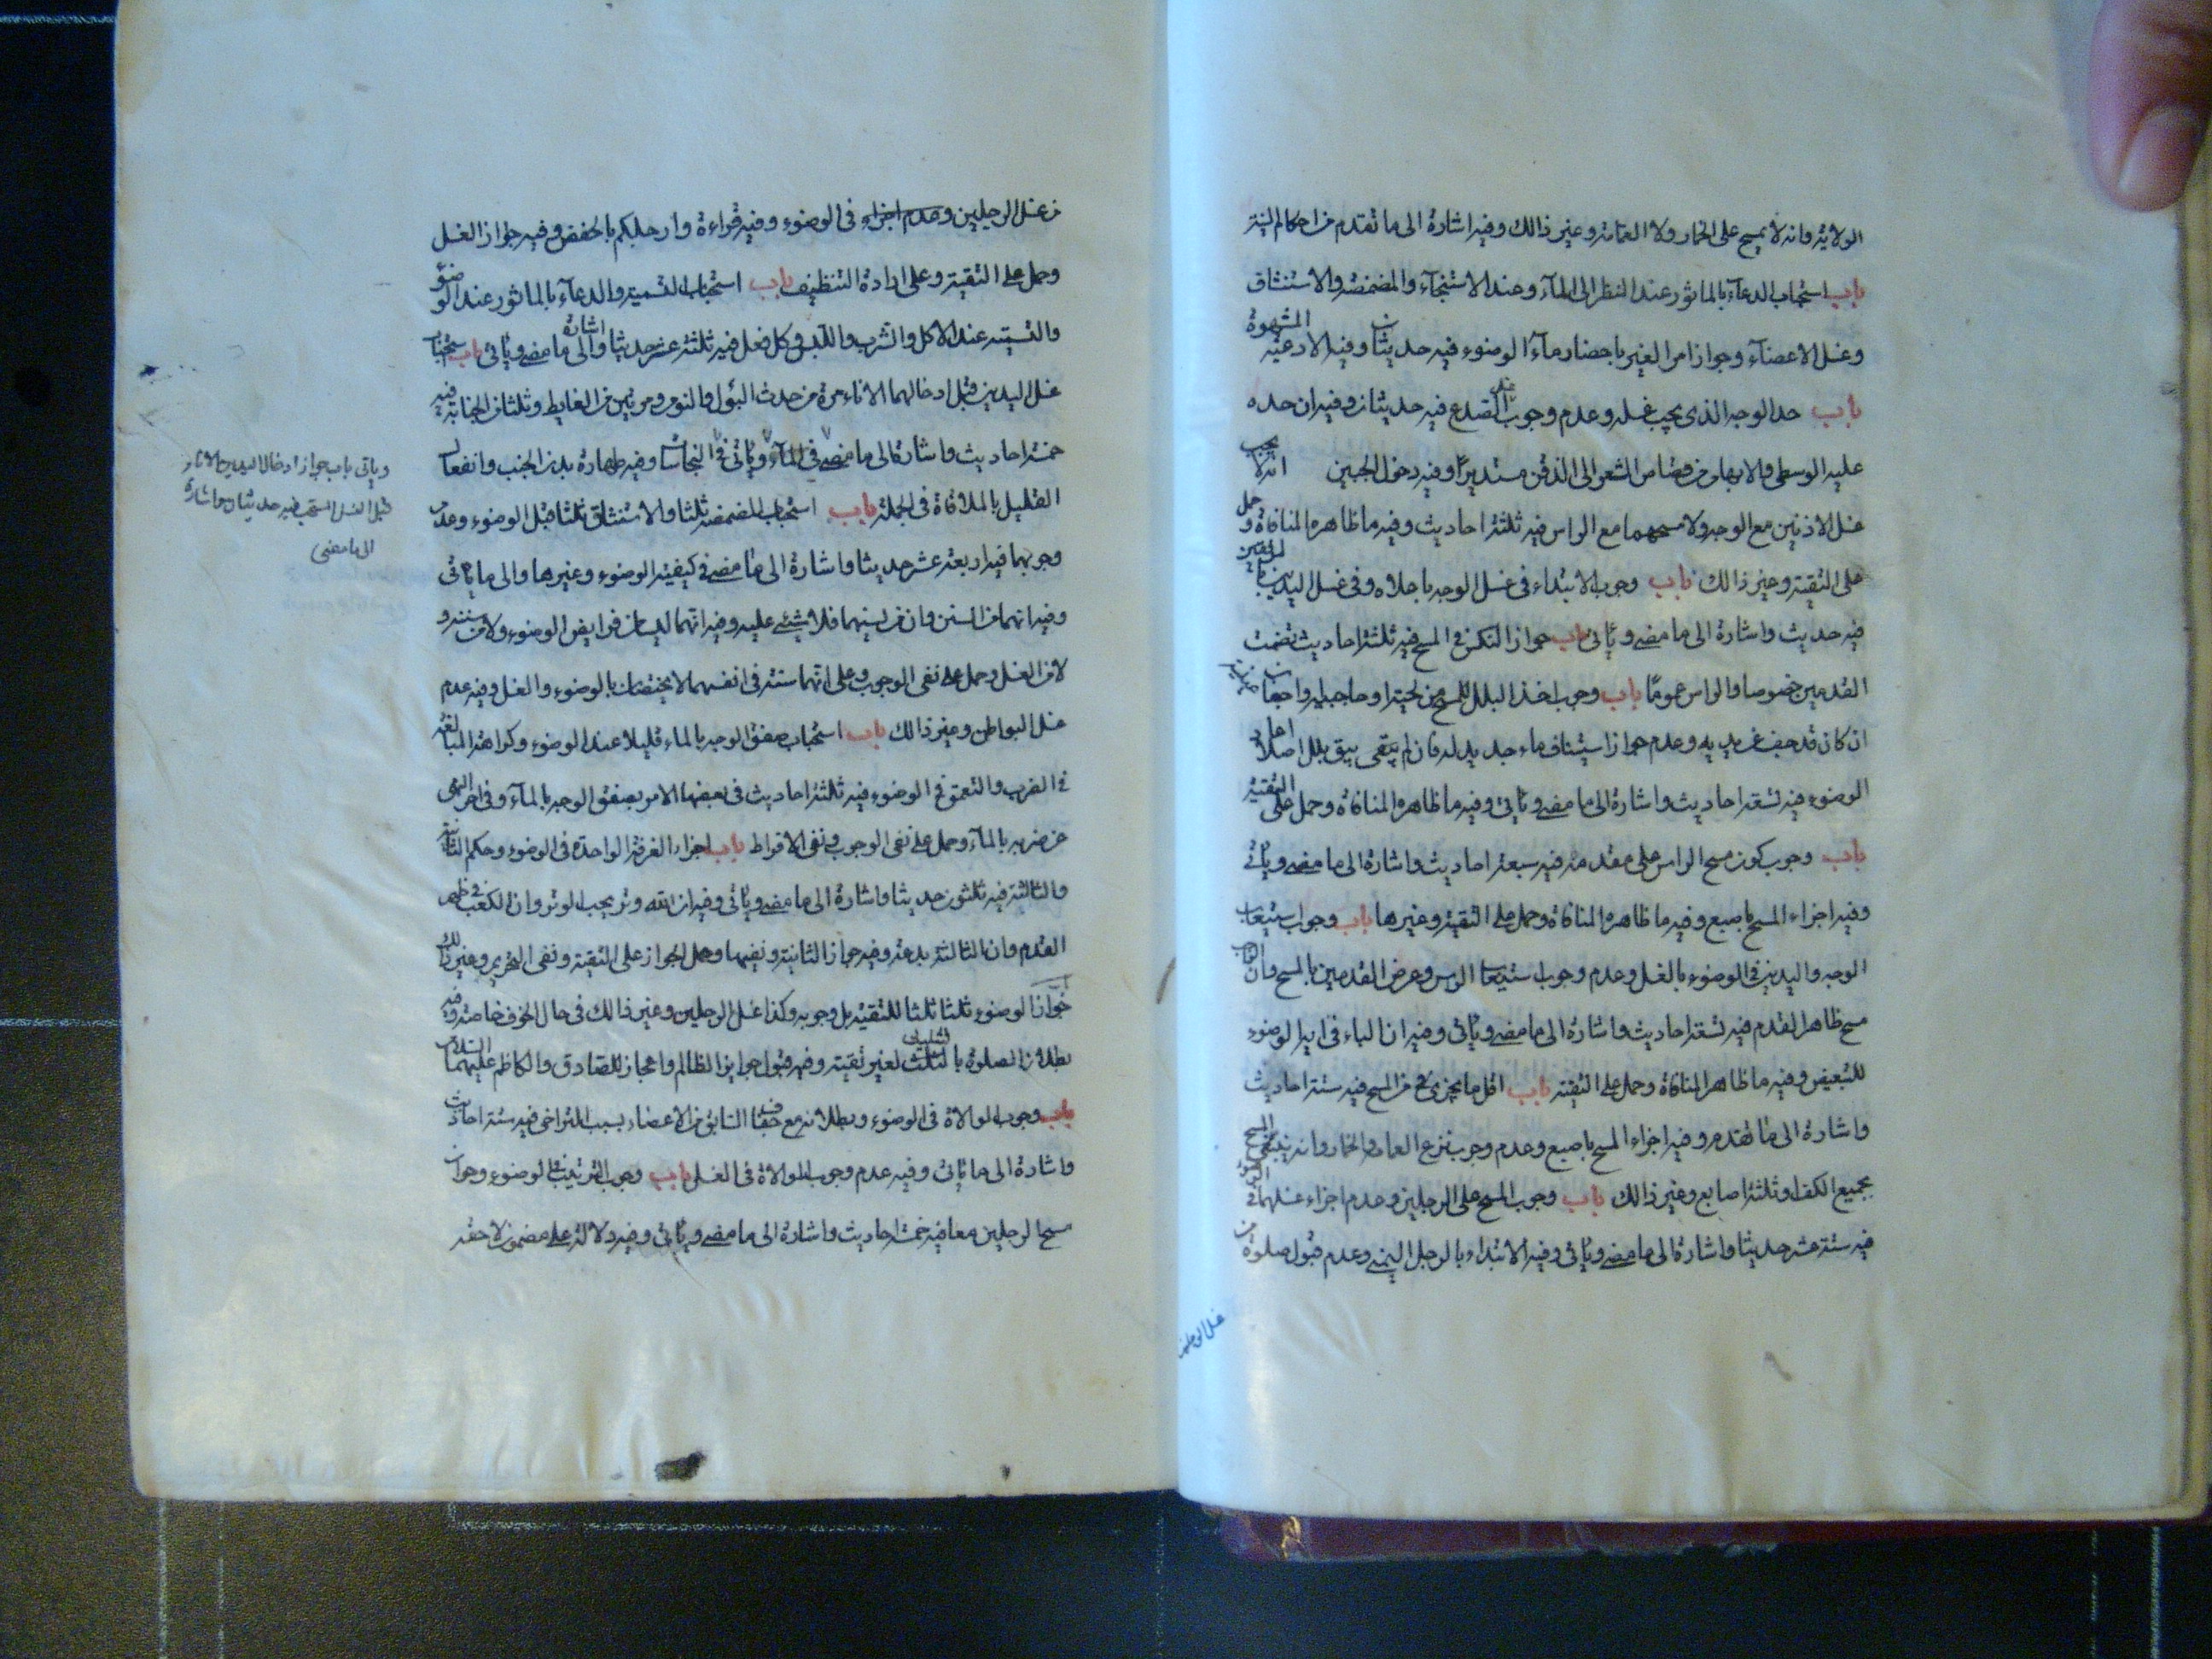 الولاية وانه لا يمسح على الخمار ولا العمامة وغير ذالك وفيه اشارة الى ما تقدم من احكام النية
باب استحباب الدعآء بالماثور عند النظر الى المآء وعند الاستنجآء والمضمضة والاستنشاق
وغسل الاعضآء وجواز امر الغير باحضار مآء الوضوء فيه حديثان وفيه الادعية المشهورة
باب حد الوجه الذى يجب غسله وعدم وجوب غسل الصدغ فيه حديثان وفيه ان حده
عليه الوسطى والابهام من قصاص الشعر الى الذقن مستديرا وفيه دخول الجبين باب انه لا يجب
غسل الاذنين مع الوجه ولا مسحهما مع الراس فيه ثلثة احاديث وفيه ما ظاهره المنافاة وحمل
على التقية وغير ذالك باب وجوب الابتداء فى غسل الوجه باعلاه وفى غسل اليدين بالمرفقين
فيه حديث واشارة الى ما مضى وياتى باب جواز النكس فى المسح فيه ثلثة احاديث تضمنت
القدمين خصوصا والراس عموما باب وجوب اخذ البلل للمسح من لحيته او حاجبيه واجفان عينيه
ان كان قد جف عن يديه وعدم جواز استيناف ماء جديد له فان لم يبق بلل اصلا اعاد
الوضوء فيه تسعة احاديث واشارة الى ما مضى وياتى وفيه ما ظاهره المنافاة وحمل على التقية
باب وجوب كون مسح الراس على مقدمه فيه سبعة احاديث واشارة الى ما مضى وياتى
وفيه اجزاء المسح باصبع وفيه ما ظاهره المنافاة وحمل على التقية وغيرها باب وجوب استيعاب
الوجه واليدين فى الوضوء بالغسل وعدم وجوب استيعاب الراس وعرض القدمين بالمسح وان الواجب
مسح ظاهر القدم فيه تسعة احاديث واشارة الى ما مضى وياتى وفيه ان الباء فى اية الوضوء
للتبعيض وفيه ما ظاهر المنافاة وحمل على التقية باب اقل ما يجزى من المسح فيه ستة احاديث
واشارة الى ما تقدم وفيه اجزاء المسح باصبع وعدم وجوب نزع العمامة والخمار وانه ينبغى المسح
بجميع الكف او ثلثة اصابع وغير ذالك باب وجوب المسح على الرجلين وعدم اجزاء غسلهما فى الوضوء
فيه ستة عشر حديثا واشارة الى ما مضى وياتى وفيه الابتداء بالرجل اليمنى وعدم قبول صلوة من
غسل الرجلين
من غسل الرجلين وعدم اجزاءه فى الوضوء وفيه قراءة وارجلكم بالخفض وفيه جواز الغسل
وحمل على التقية وعلى ارادة التنظيف باب استحباب التسمية والدعآء بالماثور عند الوضوء
والتسمية عند الاكل والشرب واللبس وكل فعل فيه ثلثة عشر حديثا واشارة الى ما مضى وياتى باب استحباب
غسل اليدين قبل ادخالهما الاناء مرة من حدث البول والنوم ومرتين من الغايط وثلثا من الجنابة فيه
خمسة احاديث واشارة الى ما مضى فى المآء وياتى فى النجاسات وفيه طهارة بدن الجنب وانفعال
القليل بالملاقاة فى الجملة باب استحباب المضمضة ثلثا والاستنشاق ثلثا قبل الوضوء وعدم
وجوبهما فيه اربعة عشر حديثا واشارة الى ما مضى فى كيفية الوضوء وغيرها والى ما ياتى
وفيه انهما من السنن وان من نسيهما فلا شئ عليه وفيه انهما ليسا من فرايض الوضوء ولا من سننه و
لا من الغسل وحمل على نفى الوجوب وعلى انهما سنة فى انفسهما لا يختصان بالوضوء والغسل وفيه عدم
غسل البواطن وغير ذالك باب استحباب صفق الوجه بالماء قليلا عند الوضوء وكراهة المبالغة
فى الضرب والتعمق فى الوضوء فيه ثلثة احاديث فى بعضها الامر بصفق الوجه بالمآء وفى اخر النهى
عن ضربه بالمآء وحمل على نفى الوجوب ونفى الافراط باب اجزاء الغرفة الواحدة فى الوضوء وحكم الثانية
والثالثة فيه ثلثون حديثا واشارة الى ما مضى وياتى وفيه ان الله وتر يحب الوتر وان الكعب فى ظهر
القدم وان الثالثة بدعة وفيه جواز الثانية ونفيها وحمل الجواز على التقية ونفى التحريم وغير ذلك
باب جواز الوضوء ثلثا ثلثا للتقية بل وجوبه وكذا غسل الرجلين وغير ذالك فى حال الخوف خاصة وفيه
بطلان الصلوة بالتثليث لغير تقية وفيه قبول جوايز الظالم واعجاز للصادق والكاظم عليهما السلام
باب وجوب الموالاة فى الوضوء وبطلانه مع جفاف السابق من الاعضاء بسبب التراخى فيه ستة احاديث
واشارة الى ما ياتى وفيه عدم وجوب الموالاة فى الغسل باب وجوب الترتيب فى الوضوء وجواز
مسح الرجلين معا فيه خمسة احاديث واشارة الى ما مضى وياتى وفيه دلالة على مضمون لاحقه
وياتى باب جواز ادخال اليدين الاناء
قبل الغسل المستحب فيه حديثان واشارة
الى ما مضى